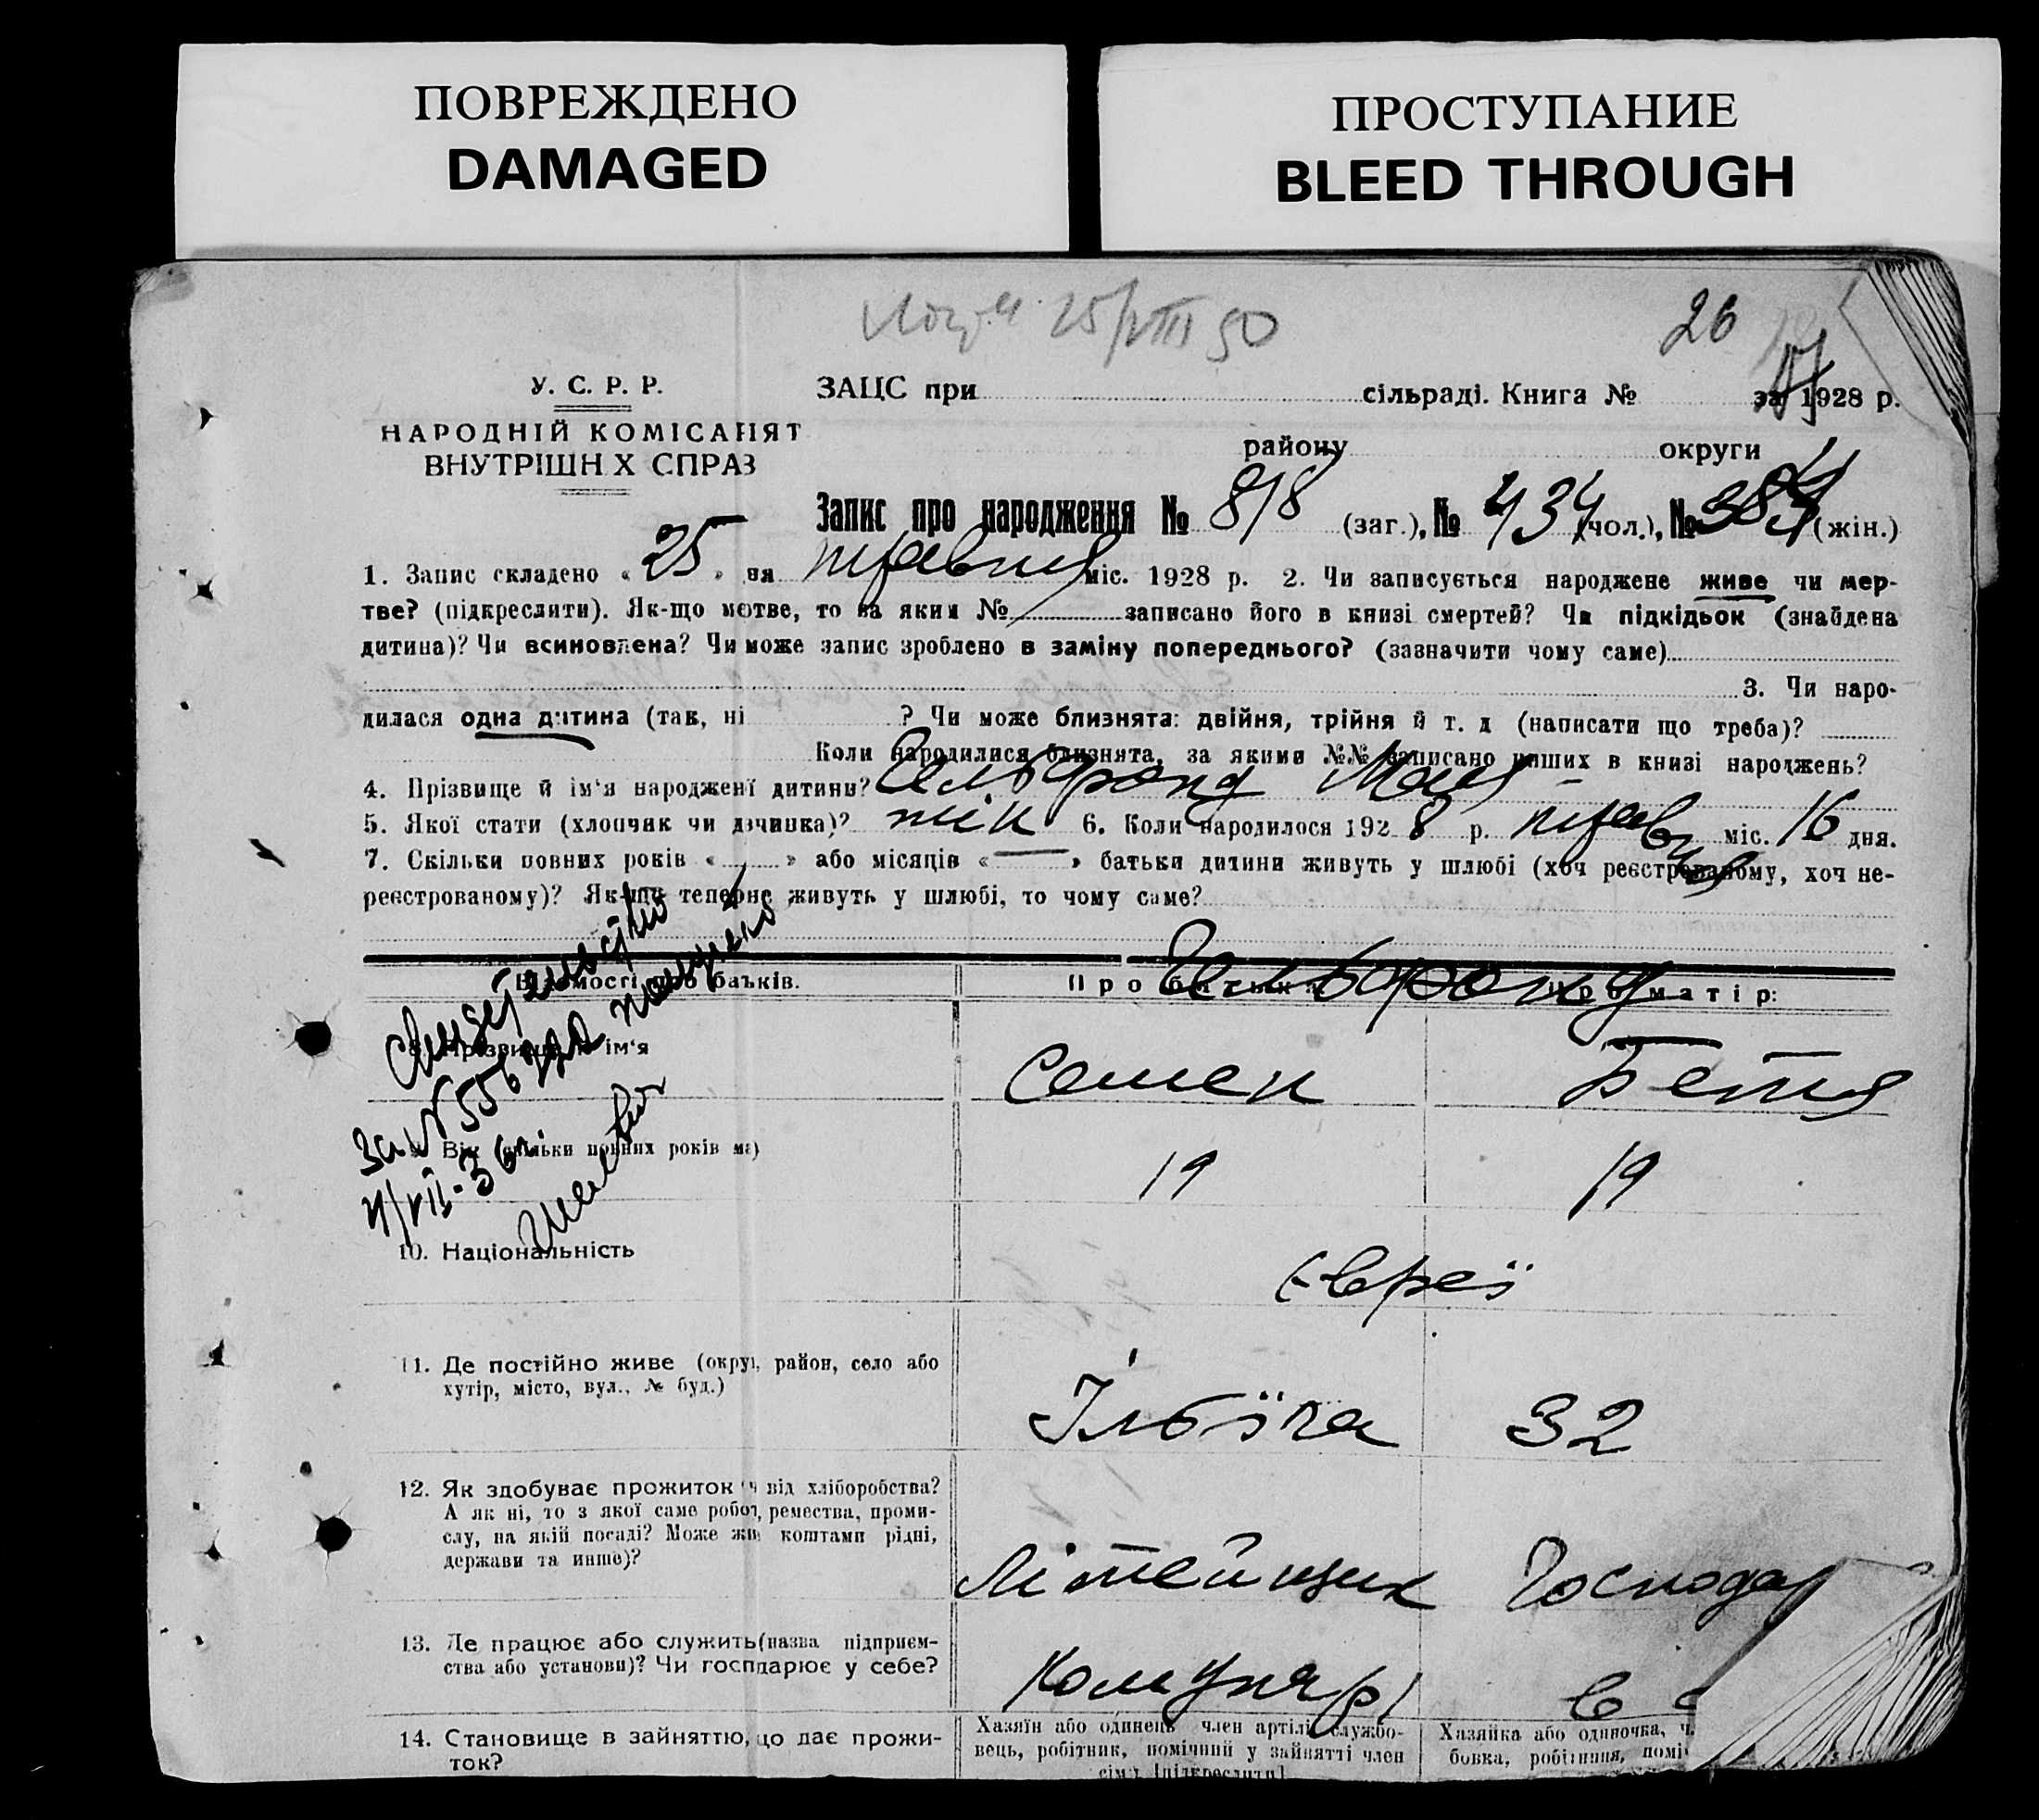 ПОВРЕЖДЕНО
DAMAGED
ПРОСТУПАНИЕ
BLEED THROUGH
25/VIII 50
26
У. С. Р. Р.
НАРОДНІЙ КОМІСАРІЯТ
ВНУТРІШНІХ СПРАВ
ЗАЦС при сільраді. Книга № за 1928 р.
району округи
Запис про народження № 818 (заг.), № 434 (чол.), № 384 (жін.)
1. Запис складено « 25 » дня травня міс. 1928 р. 2. Чи записується народжене живе чи мер-
тве? (підкреслити). Як-що мертве, то за яким № записано його в книзі смертей? Чи підкідьок (знайдена
дитина)? Чи всиновлена? Чи може запис зроблено в заміну попереднього? (зазначити чому саме)
3. Чи наро-
дилася одна дитина (так, ні ? Чи може близнята: двійня, трійня й т. д (написати що треба)?
Коли народилися близнята, за якими №№ записано инших в книзі народжень?
4. Прізвище й ім'я народженої дитини? Гельфонд
5. Якої стати (хлопчик чи дівчинка)? жін 6. Коли народилося 1928 р. травня міс. 16 дня.
7. Скільки повних років « » або місяців « — » батьки дитини живуть у шлюбі (хоч реєстрованому, хоч не-
реєстрованому)? Як-що тепер не живуть у шлюбі, то чому саме?
Відомості про батьків.
Про батька: Про матір:
Гельфонд
8. Прізвище й ім'я
Семен Бетя
9. Вік (скільки повних років має)
19 19
10. Національність
Євреї
11. Де постійно живе (округ, район, село або
хутір, місто, вул., № буд.)
Ілліча 32
12. Як здобуває прожиток чи від хліборобства?
А як ні, то з якої саме роботи, ремества, проми-
слу, на якій посаді? Може живе коштами рідні,
держави та инше)?
Літейщик Господар
13. Де працює або служить (назва підприєм-
ства або установи)? Чи господарює у себе?
Комунар в с
14. Становище в зайняттю, що дає прожи-
ток?
Хазяїн або одинець член артілі службо-
вець, робітник, помічний у зайнятті член
сім'ї [підкреслити]
Хазяйка або одиночка, ч.
бовка, робітниця, помі